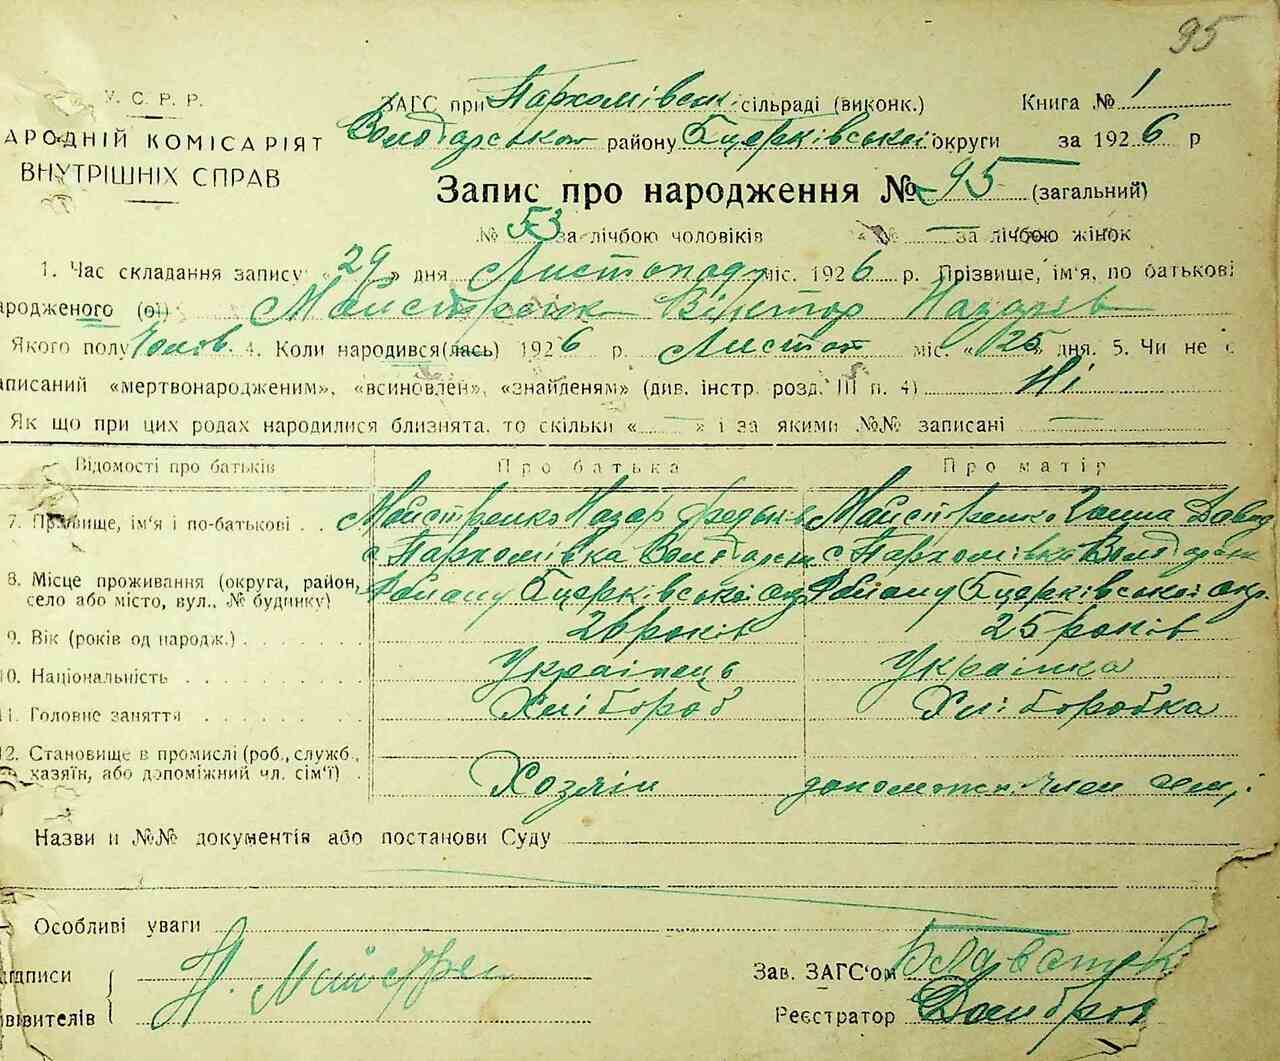 95
У. С. Р. Р.
АРОДНІЙ КОМІСАРІЯТ
ВНУТРІШНІХ СПРАВ
ЗАГС при Пархомівськ. сільраді (виконк.) Книга № 1
Володарського району Бцерківської округи за 1926 р
Запис про народження № 95 (загальний)
№ 53 за лічбою чоловіків № — за лічбою жінок
1. Час складання запису „29„ дня Листопаду міс. 1926 р. Прізвище, ім'я, по батькові
ародженого (ої) Майстренк Віктор Назарів
Якого полу Чолов. 4. Коли народився(лась) 1926 р. Листоп міс. «25» дня. 5. Чи не є
аписаний «мертвонародженим», «всиновлен», «знайденям» (див. інстр. розд. III п. 4) Ні
Як що при цих родах народилися близнята, то скільки « — » і за якими №№ записані —
Відомості про батьків Про батька Про матір
7. Прізвище, ім'я і по-батькові . . Майстренко Назар Федьків Майстренко Ганна Давид
с Пархомівка Володарськ с Пархомівка Володарськ
8. Місце проживання (округа, район, село або місто, вул., № будинку) Району Бцерківської окр Району Бцерківської окр.
9. Вік (років од народж.) . 26 років 25 років
10. Національність Українець Українка
11. Головне заняття Хлібороб Хліборобка
12. Становище в промислі (роб., служб.,
хазяїн, або допоміжний чл. сім'ї) . Хозяїн допоможн. член семї.
Назви и №№ документів або постанови Суду
Особливі уваги
ідписи Н. Майстрен Зав. ЗАГС'ом
вівителів Реєстратор Домбров